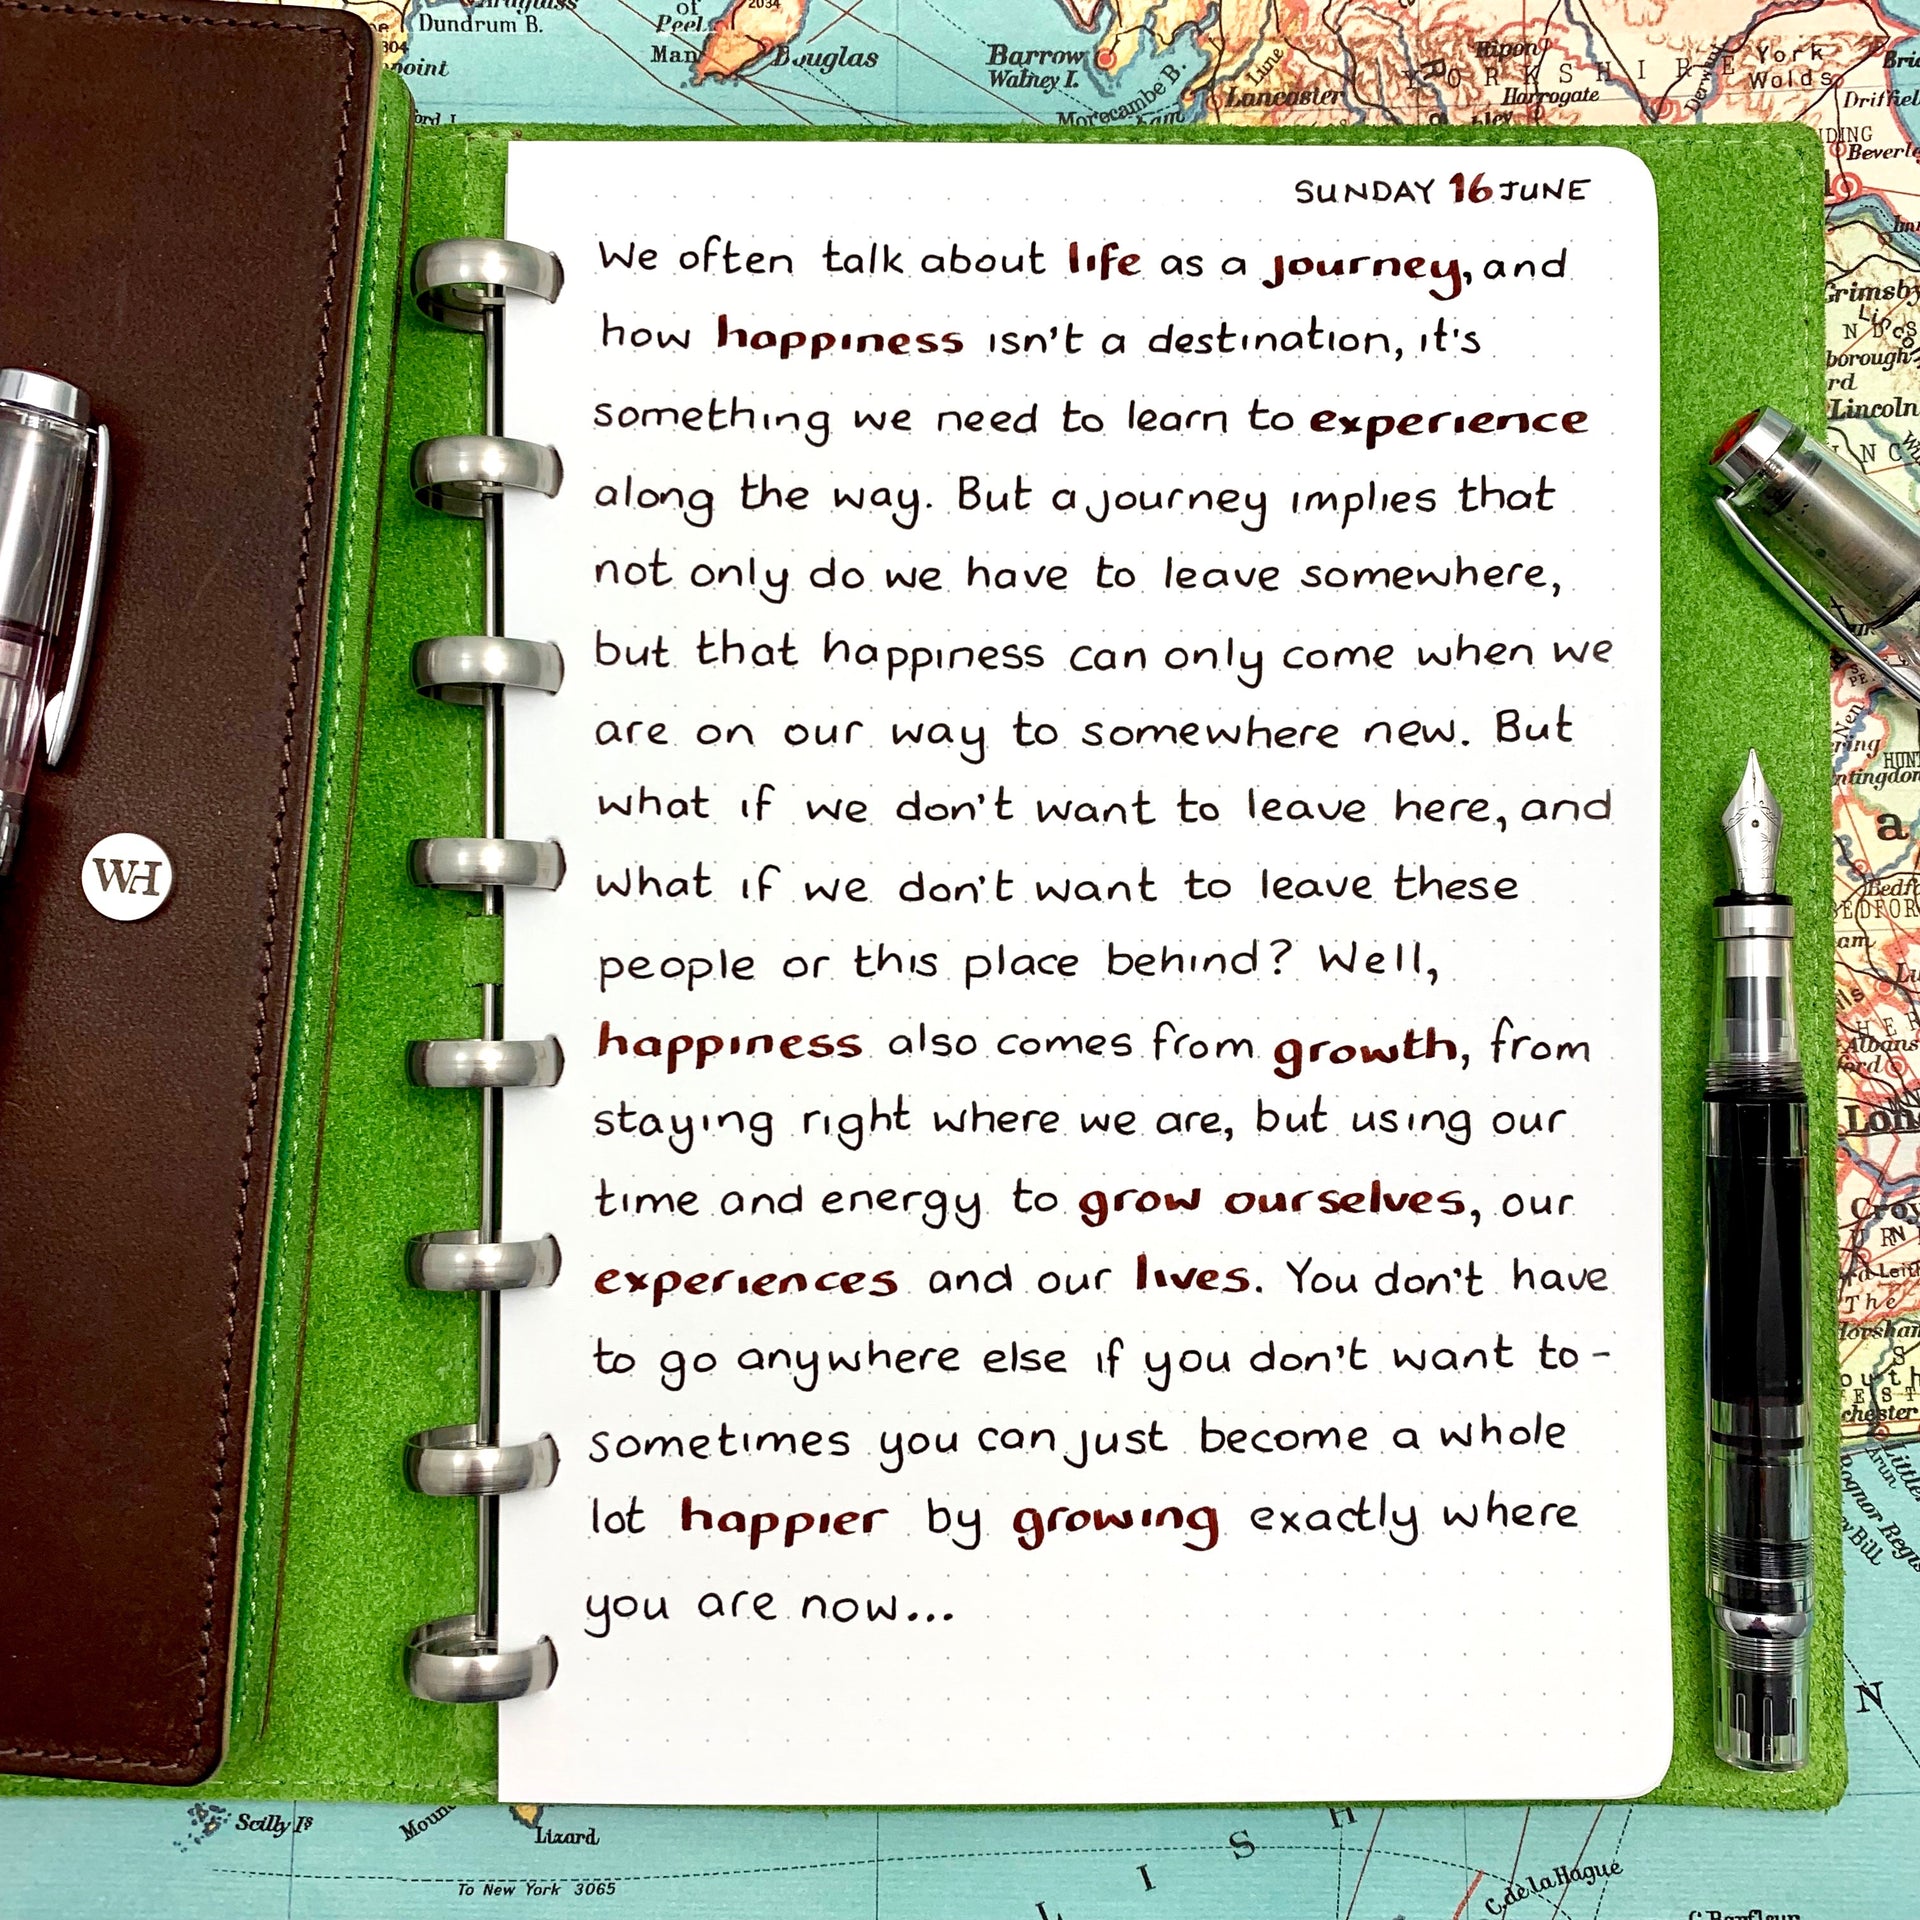 SUNDAY 16 JUNE
We often talk about life as a journey, and
how happiness isn't a destination, it's
something we need to learn to experience
along the way. But a journey implies that
not only do we have to leave somewhere,
but that happiness can only come when we
are on our way to somewhere new. But
what if we don't want to leave here, and
what if we don't want to leave these
people or this place behind? Well,
happiness also comes from growth, from
staying right where we are, but using our
time and energy to grow ourselves, our
experiences and our lives. You don't have
to go anywhere else if you don't want to -
sometimes you can just become a whole
lot happier by growing exactly where
you are now...
WH
Dundrum B.
of
Peel
Man
Douglas
2034
Barrow
Walney I.
Morecambe B.
Lune
Lancaster
Ripon
YORKSHIRE
Harrogate
Derwent
York
Wolds
Beverle
Grimsby
borough
Lincoln
Scilly Is
Lizard
To New York 3065
L I S H
C. de la Hague
N